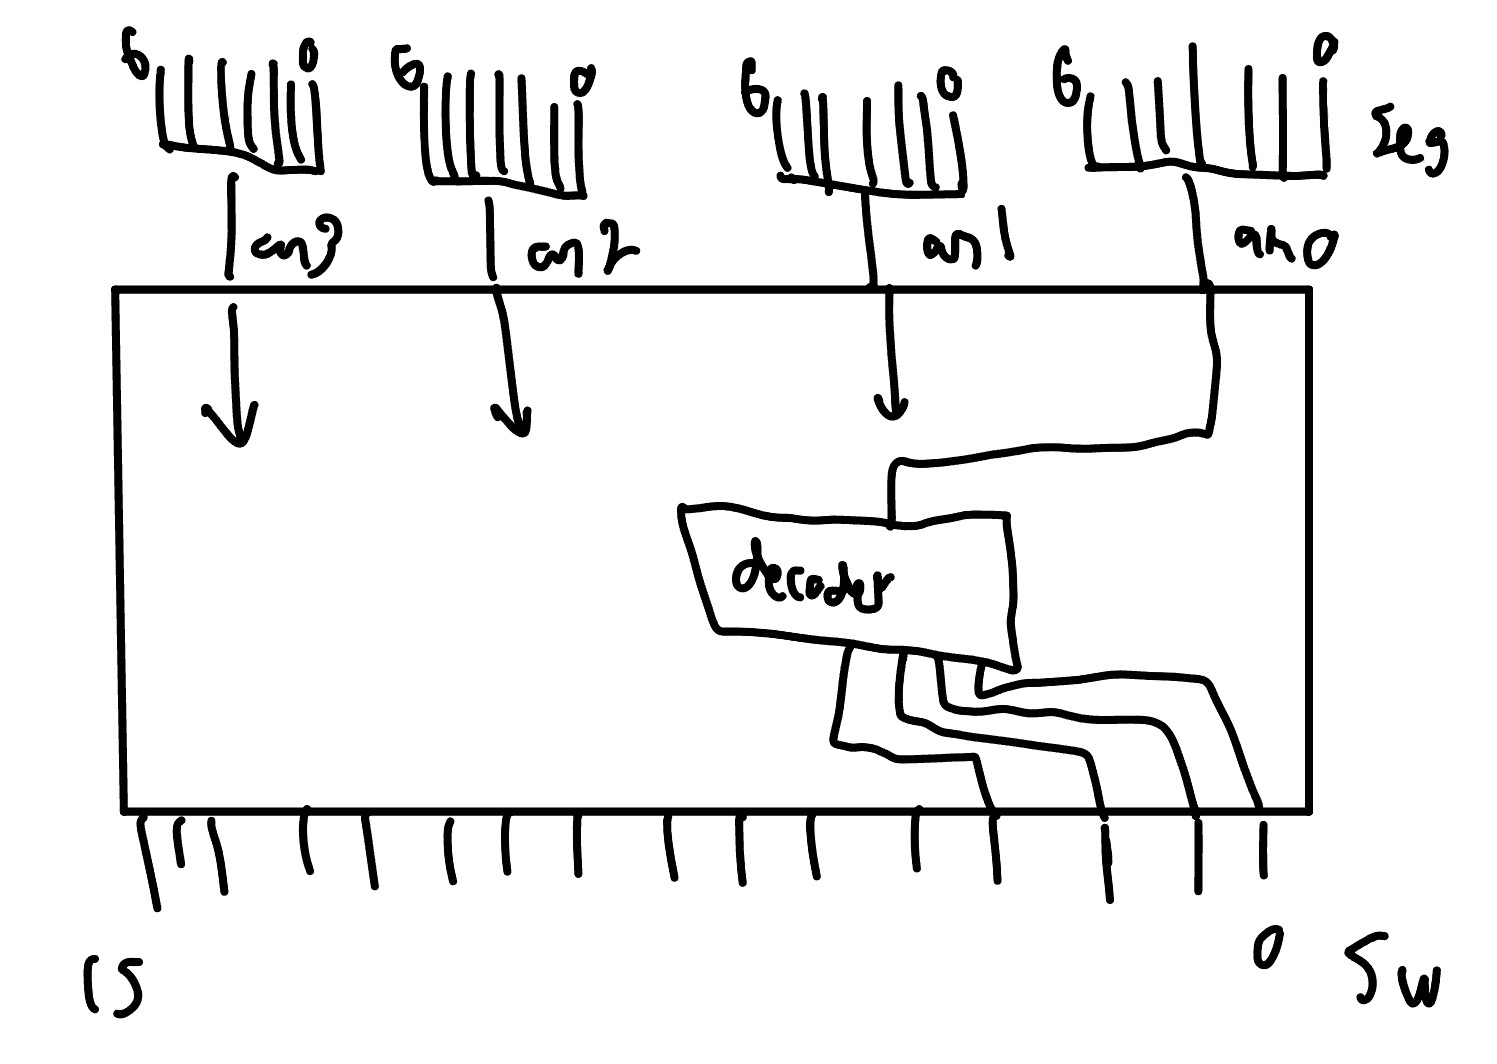 6 0 6 0 6 0 6 0
Seg
an3 an2 an1 an0
decoder
15 0 Sw